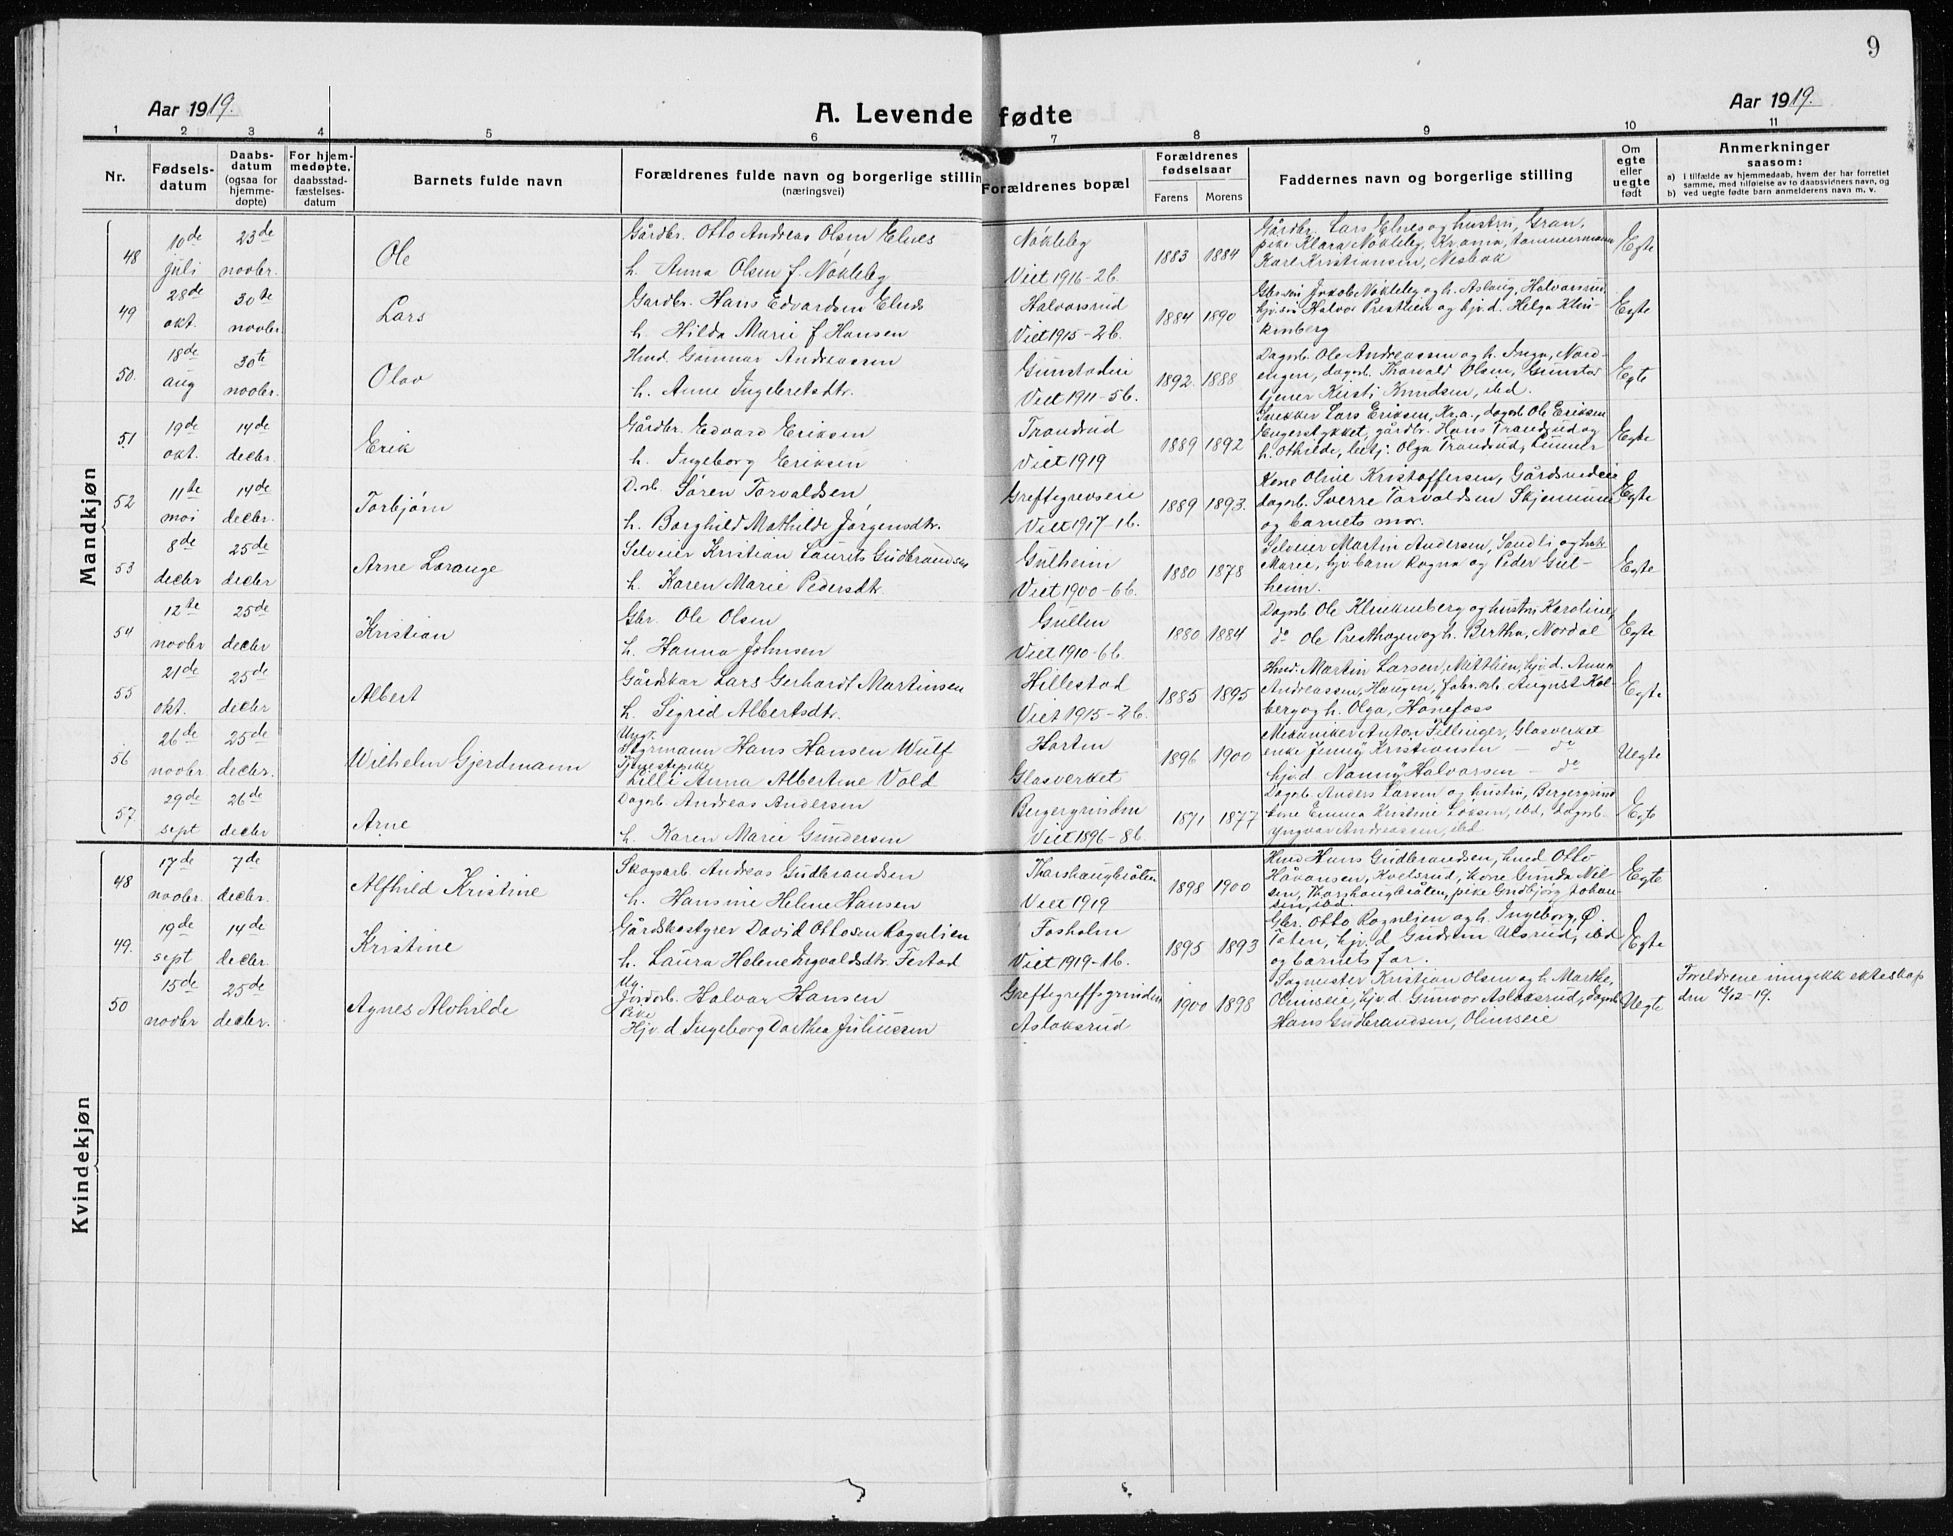 9
Aar 1919.
A. Levende fødte
Aar 1919.
1 2 3 4 5 6 7 8 9 10 11
Nr.
Fødsels-
datum
Daabs-
datum
(ogsaa for
hjemme-
døpte)
For hjem-
medøpte,
daabsstad-
fæstelses-
datum
Barnets fulde navn
Forældrenes fulde navn og borgerlige stilling
(næringsvei)
Forældrenes bopæl
Forældrenes
fødselsaar
Farens Morens
Faddernes navn og borgerlige stilling
Om
egte
eller
uegte
født
Anmerkninger
saasom:
a) i tilfælde av hjemmedaab, hvem der har forrettet
samme, med tilføielse av to daabsvidners navn, og
b) ved uegte fødte barn anmelderens navn m. v.
Mandkjøn
48 10de juli 23de novbr. Ole
Gårdbr. Otto Andreas Olsen Elnes
h. Anna Olsen f. Nøkleby
Nøkleby
Viet 1916-2b.
1883 1884
Gårdbr. Lars Elnes og hustru, Gran,
pike Klara Nøkleby, Kr.ania, tømmermann
Karl Kristiansen, Nesbak
Egte
49 28de okt. 30te novbr. Lars
Gardbr. Hans Edvardsen Elnes
h. Hilda Marie f Hansen
Halvorsrud
Viet 1915-2b.
1884 1890
Gbr.søn Jakob Nøkleby og h. Aslaug, Halvorsrud
hjv.søn Halvor Prestlien og hjv.d. Helga Klin-
kenberg
Egte
50. 18de aug 30te novbr. Olav
Hmd. Gunnar Andreassen
h. Anne Ingebretsdtr.
Gunstadeie
Viet 1911-5b.
1892. 1888
Dagarb. Ole Andreassen og h. Inga, Nord-
engen, dagarb. Thorvald Olsen, Gunstad
tjener Kirsti Knudsen, ibd.
Egte
51 19de okt. 14de decbr. Erik
Gårdbr. Edvard Eriksen
h. Ingeborg Eriksen
Trandsud
Viet 1919
1889 1892
Snekker Lars Eriksen, Kr.a., dagarb Ole Eriksen
Engerstykket, gårdbr. Hans Trandsud og
h. Othilde, Olga Trandsud,
Egte
52 11te mai 14de decbr. Torbjørn
D.arb. Søren Torvaldsen
h. Borghild Mathilde Jørgensdtr.
Greftegrevseie
Viet 1917-1b.
1889 1893.
Kone Oline Kristoffersen,
dagarb. Sverre Torvaldsen
og barnets mor.
Egte
53 8de decbr 25de decbr Arne Lorange
Selveier Kristian Laurits Gudbrandsen
h. Karen Marie Pedersdtr.
Gulheim
Viet 1900-6b.
1880 1878
Selveier Martin Andersen, Sandli og
Marie, hjv. barn Ragna og Peder Gul-
heim.
Egte
54 12te novbr 25de decbr Kristian
Gbr. Ole Olsen
h. Hanna Johnsen
Gullen
Viet 1910-6b.
1880 1884
Dagarb. Ole Klinkenberg og hustru Karoline,
do Ole Presthagen og h. Bertha, Nordal
Egte
55 21de okt. 25de decbr Albert
Gårdskar Lars Gerhardt Martinsen
h. Sigrid Albertsdtr.
Hillestad
Viet 1915-2b.
1885 1895
Hmd. Martin Larsen, hjv.d. Anna
Andreassen, Haugen, fabr.arb. August Kol-
berg og h. Olga, Hønefoss
Egte
56 26de novbr. 25de decbr. Wilhelm Gjerdmann
Ung.
Styrmann Hans Hansen Wulf
Tjenestepike
Lilli Anna Albertine Vold
Horten
Glasverket
1896 1900
Mekaniker Anton Fillinger, Glasverket
enke Jenny Kristiansen — do
hjv.d Nanny Halvorsen — do
Uegte
57. 29de sept 26de decbr Arne
Dagarb Andreas Andersen
h. Karen Marie Gundersen
Bergergrinden
Viet 1896-8b.
1871 1877
Dagarb. Anders Larsen og hustru, Bergergrind
kone Emma Kristine Larsen, ibd, Dagarb.
Yngvar Andreassen, ibd.
Egte
Kvindekjøn
48 17de novbr. 7de decbr. Alfhild Kristine
Skogsarb. Andreas Gudbrandsen
h. Hansine Helene Hansen
Thorshaugbråten
Viet 1919
1898 1900
Hmd Hans Gudbrandsen, hmd Otto
Håvansen, kone Gunda Nil-
sen, Thorshaugbråten, pike Gudbjørg Johan-
sen, ibd.
Egte
49. 19de sept 14de decbr. Kristine
Gårdsbestyrer David Ottosen Rognlien
h. Laura Helene Ingvaldsdtr. Festad
Fosholm
Viet 1919-1b.
1895 1893
Gbr. Otto Rognlien og h. Ingeborg, Ø.
Toten, hjv.d Gudrun Ulsrud, ibd
og barnets far.
Egte
50 15de novbr 25de decbr. Agnes Alvhilde
Ug.
Jordarb. Halvor Hansen
Pike
Hjv.d Ingeborg Dorthea Juliussen
Greftegreffsgrinden
Aslaksrud
1900 1898
Sagmester Kristian Olsen og h. Marthe,
Olimseie, hjv.d. Gunvor Aslaksrud, dagarb
Hans Gudbrandsen, Olimseie
Uegte
Foreldrene inngikk ekteskap
den /12-19.